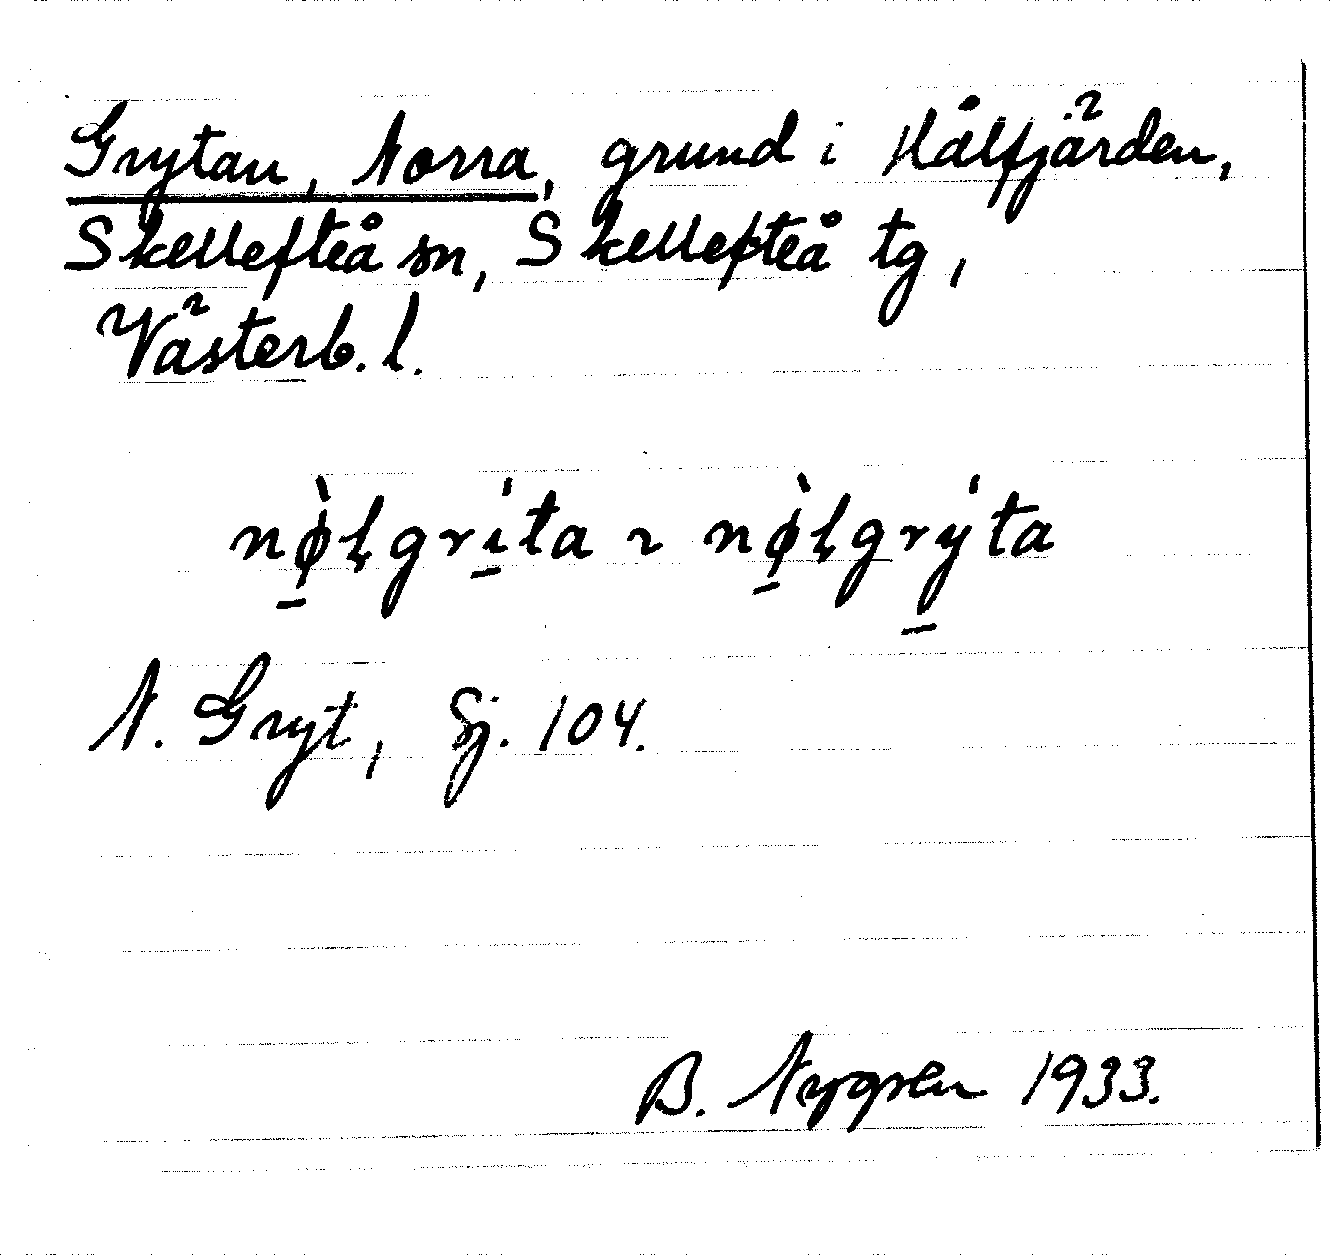 Grytan, Norra, grund i Kålfjärden,
Skellefteå sn, Skellefteå tg,
Västerb. l.
nø̀ḷgrı́ta ~ nø̀ḷgrýta
N. Gryt, Sj. 104.
B. Nygren 1933.